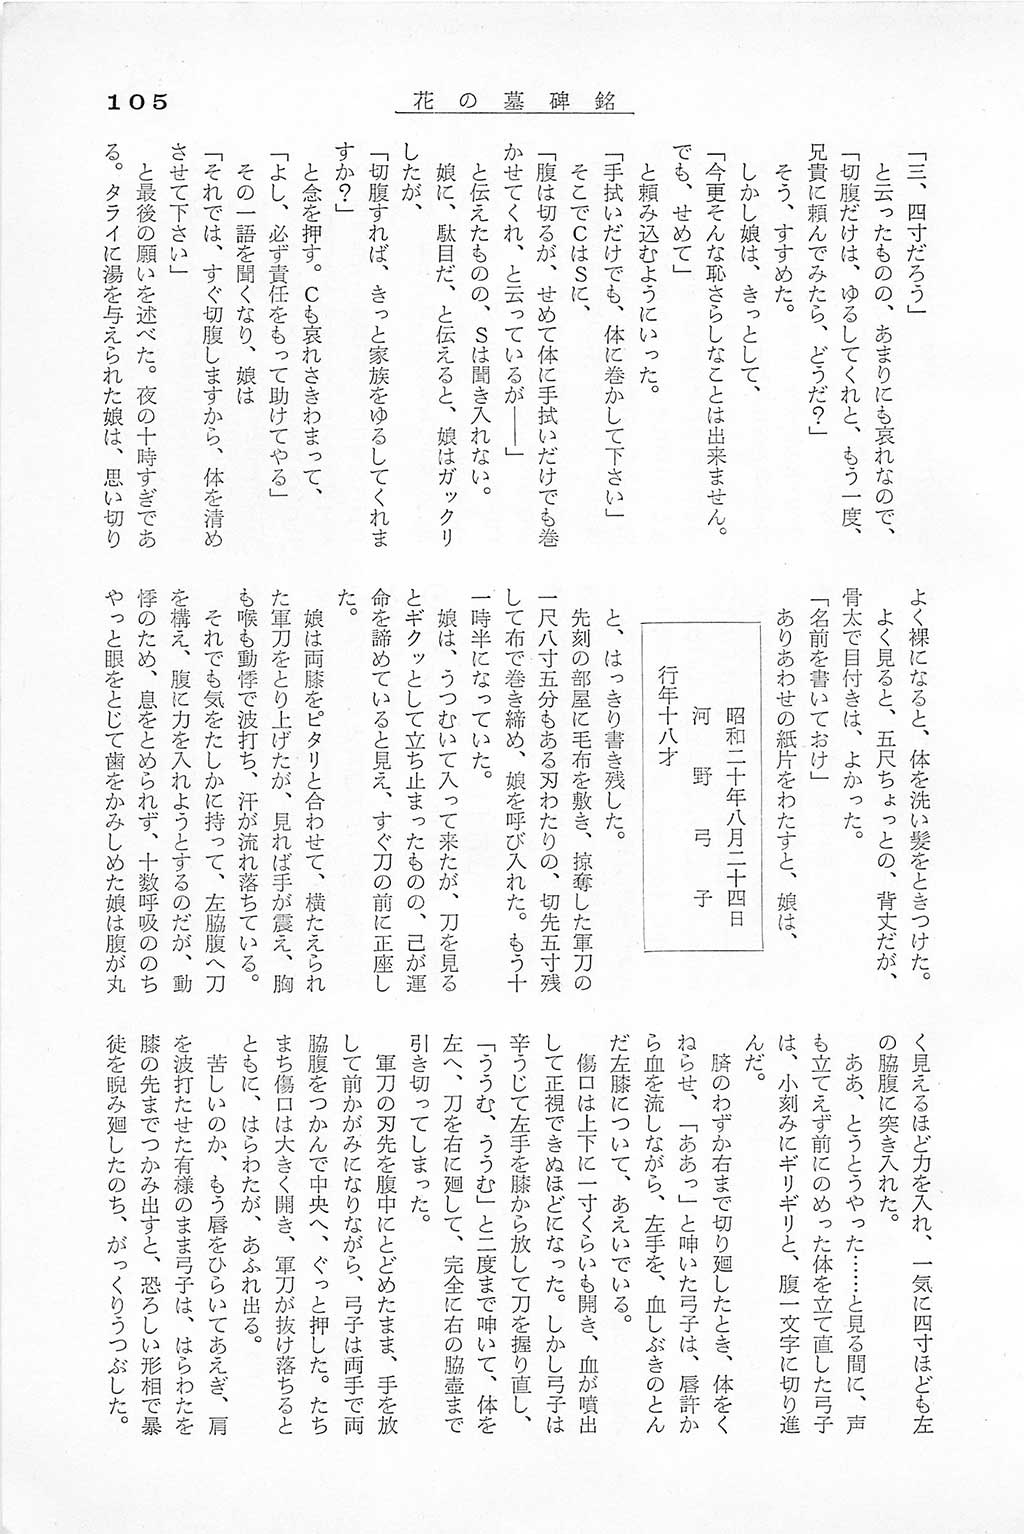 105
花の墓碑銘
「三、四寸だろう」
と云ったものの、あまりにも哀れなので、
「切腹だけは、ゆるしてくれと、もう一度、
兄貴に頼んでみたら、どうだ？」
そう、すすめた。
しかし娘は、きっとして、
「今更そんな恥さらしなことは出来ません。
でも、せめて」
と頼み込むようにいった。
「手拭いだけでも、体に巻かして下さい」
そこでCはSに、
「腹は切るが、せめて体に手拭いだけでも巻
かせてくれ、と云っているが――」
と伝えたものの、Sは聞き入れない。
娘に、駄目だ、と伝えると、娘はガックリ
したが、
「切腹すれば、きっと家族をゆるしてくれま
すか？」
と念を押す。Cも哀れさきわまって、
「よし、必ず責任をもって助けてやる」
その一語を聞くなり、娘は
「それでは、すぐ切腹しますから、体を清め
させて下さい」
と最後の願いを述べた。夜の十時すぎであ
る。タライに湯を与えられた娘は、思い切り
よく裸になると、体を洗い髪をときつけた。
よく見ると、五尺ちょっとの、背丈だが、
骨太で目付きは、よかった。
「名前を書いておけ」
ありあわせの紙片をわたすと、娘は、
昭和二十年八月二十四日
河野弓子
行年十八才
と、はっきり書き残した。
先刻の部屋に毛布を敷き、掠奪した軍刀の
一尺八寸五分もある刃わたりの、切先五寸残
して布で巻き締め、娘を呼び入れた。もう十
一時半になっていた。
娘は、うつむいて入って来たが、刀を見る
とギクッとして立ち止まったものの、己が運
命を諦めていると見え、すぐ刀の前に正座し
た。
娘は両膝をピタリと合わせて、横たえられ
た軍刀をとり上げたが、見れば手が震え、胸
も喉も動悸で波打ち、汗が流れ落ちている。
それでも気をたしかに持って、左脇腹へ刀
を構え、腹に力を入れようとするのだが、動
悸のため、息をとめられず、十数呼吸ののち
やっと眼をとじて歯をかみしめた娘は腹が丸
く見えるほど力を入れ、一気に四寸ほども左
の脇腹に突き入れた。
ああ、とうとうやった……と見る間に、声
も立てえず前にのめった体を立て直した弓子
は、小刻みにギリギリと、腹一文字に切り進
んだ。
臍のわずか右まで切り廻したとき、体をく
ねらせ、「ああっ」と呻いた弓子は、唇許か
ら血を流しながら、左手を、血しぶきのとん
だ左膝について、あえいでいる。
傷口は上下に一寸くらいも開き、血が噴出
して正視できぬほどになった。しかし弓子は
辛うじて左手を膝から放して刀を握り直し、
「ううむ、ううむ」と二度まで呻いて、体を
左へ、刀を右に廻して、完全に右の脇壺まで
引き切ってしまった。
軍刀の刃先を腹中にとどめたまま、手を放
して前かがみになりながら、弓子は両手で両
脇腹をつかんで中央へ、ぐっと押した。たち
まち傷口は大きく開き、軍刀が抜け落ちると
ともに、はらわたが、あふれ出る。
苦しいのか、もう唇をひらいてあえぎ、肩
を波打たせた有様のまま弓子は、はらわたを
膝の先までつかみ出すと、恐ろしい形相で暴
徒を睨み廻したのち、がっくりうつぶした。